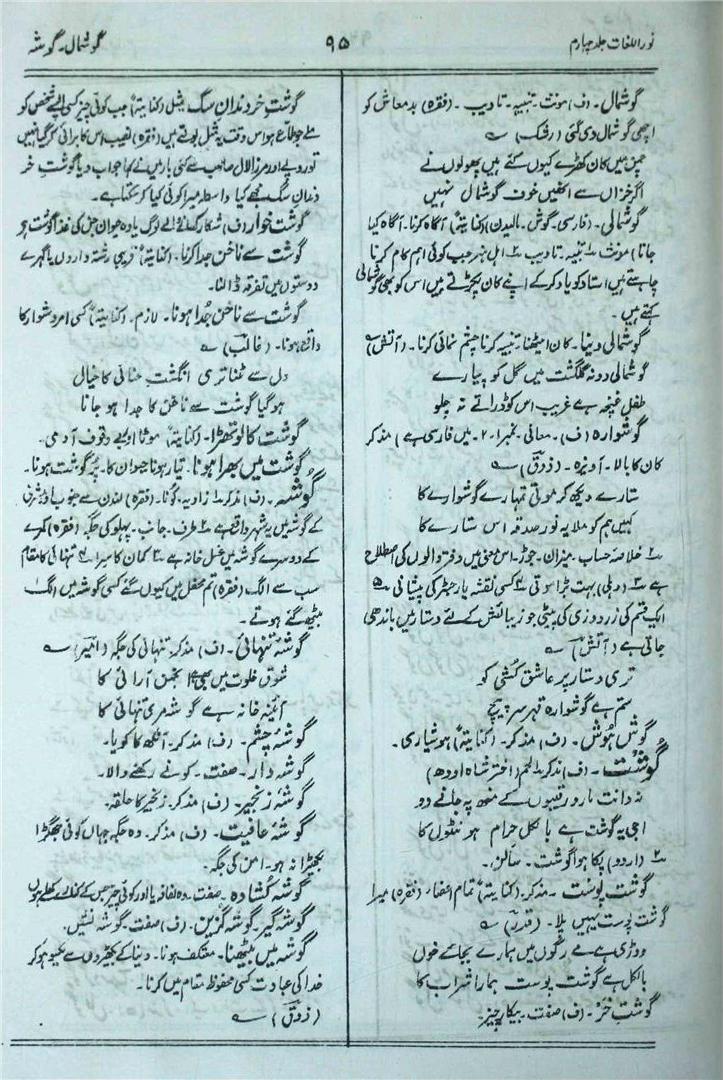 نوراللغات جلد چہارم
۹۵
گوشمال۔ گوشہ
گوشمال۔ (ف) مونث۔ تنبیہ۔ تادیب۔ (فقرہ) بدمعاش کو
اچھی گوشمال دی گئی (رشک) ؎
چمن میں کان کھڑے کیوں کئے ہیں پھولوں نے
اگر خزاں سے انھیں خوف گوشمال نہیں
گوشمالی۔ (فارسی۔ گوش۔ مالیدن) (کنایتہً) آگاہ کرنا۔ آگاہ کیا
جانا) مونث ۱؎ تنبیہ۔ تادیب ۲؎ اہل ہنر جب کوئی اہم کام کرنا
چاہتے ہیں استاد کو یاد کر کے اپنے کان پکڑتے ہیں اس کو بھی گوشمالی
کہتے ہیں۔
گوشمالی دینا۔ کان امیٹھنا۔ تنبیہ کرنا۔ چشم نمائی کرنا۔ (آتش) ؎
گوشمالی دو نہ گلگشت میں گل کو پیارے
طفل غنچہ ہے غریب اس کو ڈراتے نہ چلو
گوشوارہ (ف)۔ معانی۔ نمبر ۱۔ ۲۔ میں فارسی ہے) مذکر
کان کا بالا۔ آویزہ۔ (ذوق) ؎
ستارے دیکھ کر موتی تمہارے گوشوارے کا
کہیں ہم کو ملا یہ نور صدقہ اس ستارے کا
۲؎ خلاصہ حساب۔ میزان۔ جوڑ۔ اس معنی میں دفتر والوں کی اصطلاح
ہے ۳؎ (دہلی) بہت بڑا موتی ۴؎ کسی نقشہ یا رجسٹر کی پیشانی ۵؎
ایک قسم کی زردوزی کی پیٹی جو زیبائش کے لئے دستار میں باندھی
جاتی ہے (آتش) ؎
تری دستار پر عاشق کشی کو
ستم ہے گوشوارہ قہر سر پیچ
گوش ہوش۔ (ف) مذکر۔ (کنایتہً) ہوشیاری۔
گوشت۔ (ف) مذکر ۱؎ لحم (اختر شاہ اودھ)
نہ دانت مارو رقیبوں کے منہ پہ جانے دو
اجی یہ گوشت ہے بالکل حرام ہونٹوں کا
۲؎ (اردو) پکا ہوا گوشت۔ سالن۔
گوشت پوست۔ مذکر۔ (کنایتہً) تمام اعضاء (فقرہ) میرا
گوشت پوست یہیں پلا۔ (قدر) ؎
دوڑی ہے مے رگوں میں ہمارے بجائے خوں
بالکل ہے گوشت پوست ہمارا شراب کا
گوشتِ خر۔ (ف) صفت۔ بیکار چیز۔
گوشت خر دندان سگ۔ مثل (کنایتہً) جب کوئی چیز کسی ایسے شخص کو
ملے جو طامع ہو اس وقت یہ مثل بولتے ہیں (فقرہ) نصیب اس کا برائی کر گیا نہیں
تو روپے اور مرزا لال صاحب سے کئی بار میں نے کہا جواب دیا گوشتِ خر
دندان سگ مجھے کیا واسطہ میرا کوئی کیا کر سکتا ہے۔
گوشت خوار (ف) شکار کھانے والے لوگ یا وہ حیوان جن کی غذا گوشت ہو
گوشت سے ناخن جدا کرنا۔ (کنایتہً) قریبی رشتہ داروں یا گہرے
دوستوں میں تفرقہ ڈالنا۔
گوشت سے ناخن جُدا ہونا۔ لازم۔ (کنایتہً) کسی امر دشوار کا
واقع ہونا۔ (غالب) ؎
دل سے مٹنا تری انگشت حنائی کا خیال
ہو گیا گوشت سے ناخن کا جدا ہو جانا
گوشت کا لوتھڑا۔ (کنایتہً) موٹا اور بے وقوف آدمی۔
گوشت میں بھرا ہونا۔ تیار ہونا حیوان کا۔ پُر گوشت ہونا۔
گوشہ۔ (ف) مذکر ۱؎ زاویہ۔ کونا۔ (فقرہ) لندن سے جنوب اور شرق
کے گوشہ میں یہ شہر واقع ہے ۲؎ طرف۔ جانب۔ پہلو کی جگہ (فقرہ) کمرے
کے دوسرے گوشہ میں غسل خانہ ہے ۳؎ کمان کا سرا ۴؎ تنہائی کا مقام
سب سے الگ (فقرہ) تم محفل میں کیوں گئے کسی گوشہ میں الگ
بیٹھ گئے ہوتے۔
گوشۂ تنہائی۔ (ف) مذکر۔ تنہائی کی جگہ (امیر) ؎
شوق خلوت میں بھی ہے انجمن آرائی کا
آئینہ خانہ ہے گوشہ مری تنہائی کا
گوشۂ چشم۔ (ف) مذکر۔ آنکھ کا کویا۔
گوشہ دار۔ صفت۔ کونے رکھنے والا۔
گوشۂ زنجیر۔ (ف) مذکر۔ زنجیر کا حلقہ۔
گوشۂ عافیت۔ (ف) مذکر۔ وہ جگہ جہاں کوئی جھگڑا
بکھیڑا نہ ہو۔ امن کی جگہ۔
گوشہ کُشادہ۔ صفت۔ وہ لفافہ یا اور کوئی چیز جس کے کنارے کھلے ہوں
گوشہ گیر۔ گوشہ گزیں۔ (ف) صفت۔ گوشہ نشیں۔
گوشہ میں بیٹھنا۔ معتکف ہونا۔ دنیا کے بکھیڑوں سے یکسو ہو کر
خدا کی عبادت کسی محفوظ مقام میں کرنا۔
(ذوق) ؎